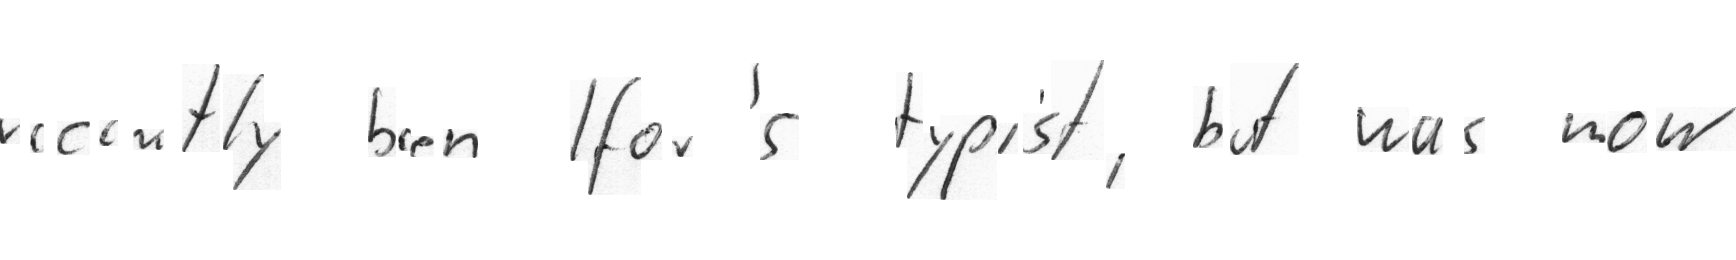 recently been Ifor's typist, but was now